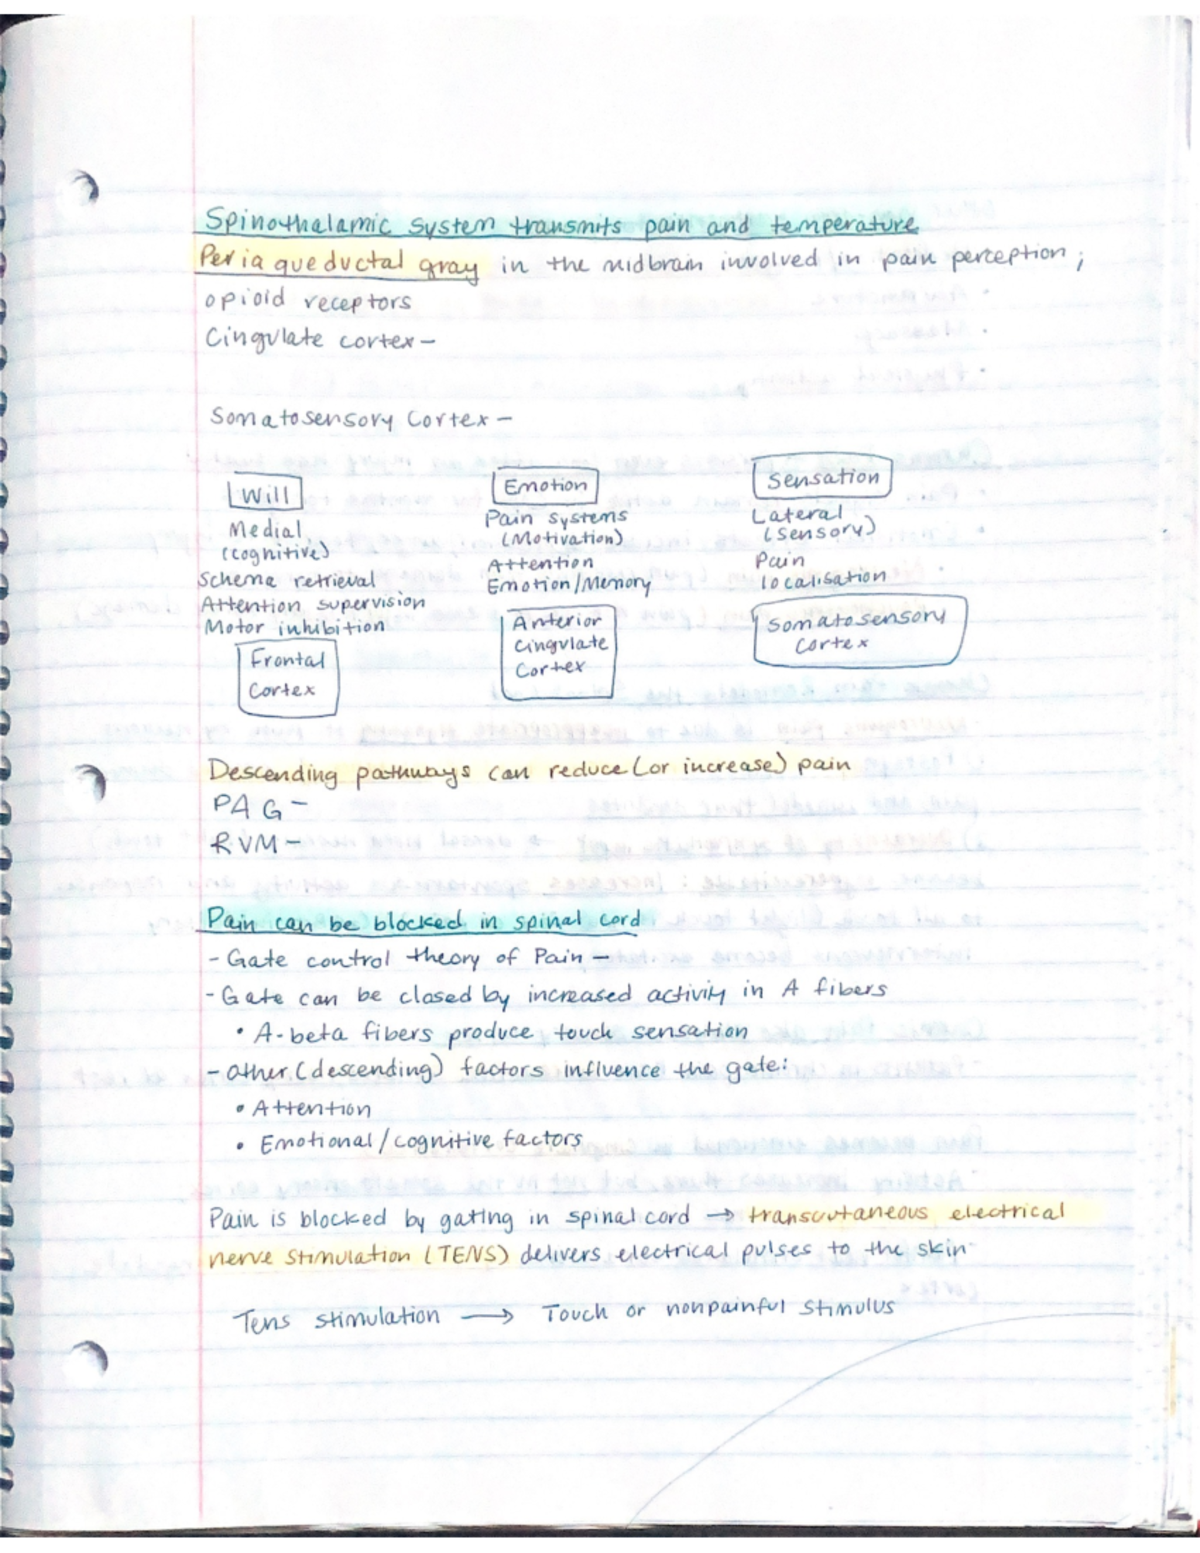 Spinothalamic system transmits pain and temperature
Periaqueductal gray in the midbrain involved in pain perception;
opioid receptors
Cingulate cortex-
Somatosensory Cortex-
Will Emotion Sensation
Medial
(cognitive)
Schema retrieval
Attention supervision
Motor inhibition
Frontal
Cortex
Pain systems
(Motivation)
Attention
Emotion/Memory
Anterior
Cingulate
Cortex
Lateral
(sensory)
Pain
localisation
Somatosensory
Cortex
Descending pathways can reduce (or increase) pain
PAG-
RVM-
Pain can be blocked in spinal cord
- Gate control theory of Pain-
- Gate can be closed by increased activity in A fibers
• A-beta fibers produce touch sensation
- other (descending) factors influence the gate:
• Attention
• Emotional/cognitive factors
Pain is blocked by gating in spinal cord → transcutaneous electrical
nerve stimulation (TENS) delivers electrical pulses to the skin
Tens stimulation → Touch or nonpainful stimulus